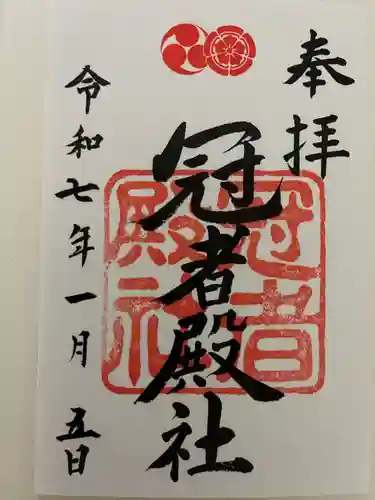 奉拝
冠者殿社
冠者
殿社
令和七年一月五日